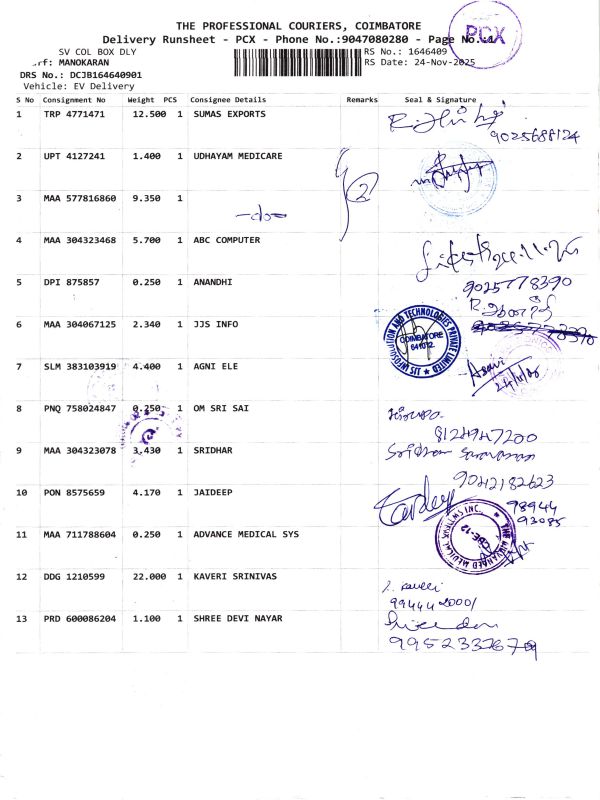 THE PROFESSIONAL COURIERS, COIMBATORE
Delivery Runsheet - PCX - Phone No.:9047080280 - Page No.
PCX
SV COL BOX DLY
RS No.: 1646409
rf: MANOKARAN
RS Date: 24-Nov-2025
DRS No.: DCJB164640901
Vehicle: EV Delivery
S No Consignment No Weight PCS Consignee Details Remarks Seal & Signature
1 TRP 4771471 12.500 1 SUMAS EXPORTS
9025688124
2 UPT 4127241 1.400 1 UDHAYAM MEDICARE
2
3 MAA 577816860 9.350 1
-do-
4 MAA 304323468 5.700 1 ABC COMPUTER
5 DPI 875857 0.250 1 ANANDHI
9025778390
6 MAA 304067125 2.340 1 JJS INFO
JJS INFORMATION AND TECHNOLOGIES PRIVATE LIMITED
COIMBATORE
641012.
7 SLM 383103919 4.400 1 AGNI ELE
8 PNQ 758024847 0.250 1 OM SRI SAI
8124947200
9 MAA 304323078 3.430 1 SRIDHAR
Sridhar Saravanan
9042182623
10 PON 8575659 4.170 1 JAIDEEP
98944
93085
11 MAA 711788604 0.250 1 ADVANCE MEDICAL SYS
CBE-12
12 DDG 1210599 22.000 1 KAVERI SRINIVAS
99444 20001
13 PRD 600086204 1.100 1 SHREE DEVI NAYAR